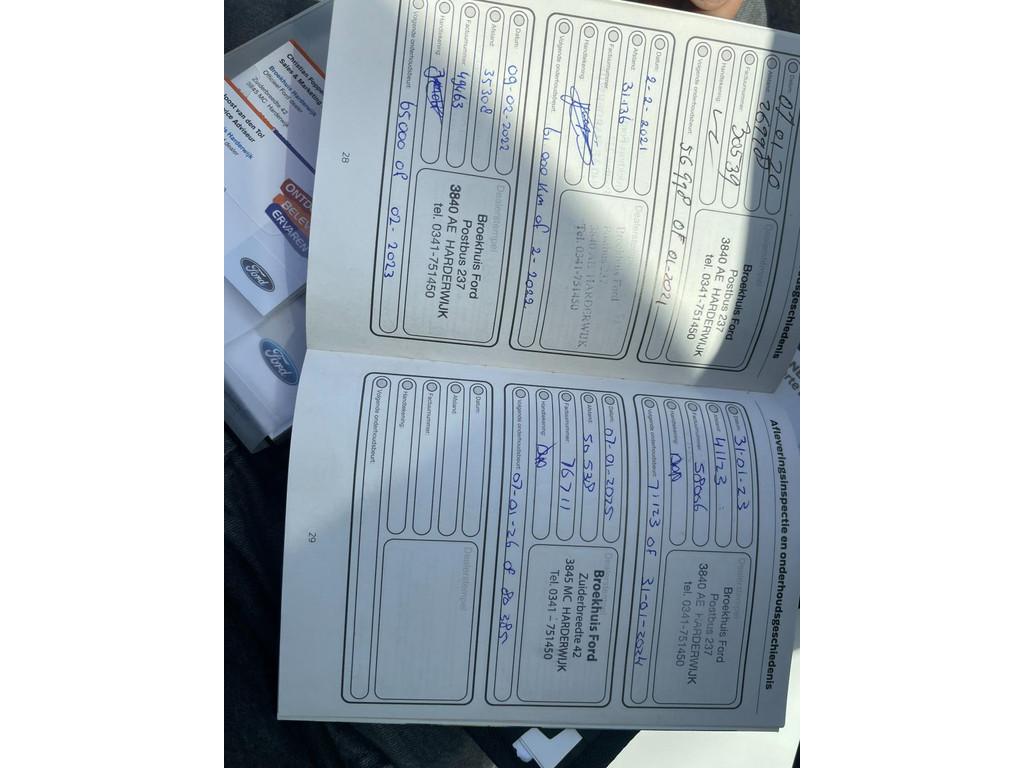 Afleveringsinspectie en onderhoudsgeschiedenis
Datum: 07 01 20
Afstand: 26998
Factuurnummer: 30539
Handtekening:
Volgende onderhoudsbeurt: 56998 OF 01-2021
Dealerstempel
Broekhuis Ford
Postbus 237
3840 AE HARDERWIJK
tel. 0341-751450
Datum: 2-2-2021
Afstand: 31.136
Factuurnummer:
Handtekening:
Volgende onderhoudsbeurt: 61.000 km of 2-2022
Dealerstempel
Broekhuis Ford
Postbus 237
3840 AE HARDERWIJK
Tel. 0341-751450
Datum: 09-02-2022
Afstand: 35308
Factuurnummer: 49463
Handtekening:
Volgende onderhoudsbeurt: 65000 OF 02-2023
Dealerstempel
Broekhuis Ford
Postbus 237
3840 AE HARDERWIJK
tel. 0341-751450
28
Afleveringsinspectie en onderhoudsgeschiedenis
Datum: 31-01-23
Afstand: 41123
Factuurnummer: 58066
Handtekening:
Volgende onderhoudsbeurt: 71123 OF 31-01-2024
Dealerstempel
Broekhuis Ford
Postbus 237
3840 AE HARDERWIJK
tel. 0341-751450
Datum: 07-01-2025
Afstand: 50538
Factuurnummer: 76711
Handtekening:
Volgende onderhoudsbeurt: 07-01-26 of 80 385
Dealerstempel
Broekhuis Ford
Zuiderbreedte 42
3845 MC HARDERWIJK
Tel. 0341 - 751450
Datum:
Afstand:
Factuurnummer:
Handtekening:
Volgende onderhoudsbeurt:
Dealerstempel
29
Christian
Sales & Marketing
Broekhuis Harderwijk
Officieel Ford dealer
Zuiderbreedte 42
3845 MC Harderwijk
Joost van den Tol
Service Adviseur
Harderwijk
dealer
ONTD
BELEV
ERVAREN
Ford
Ford